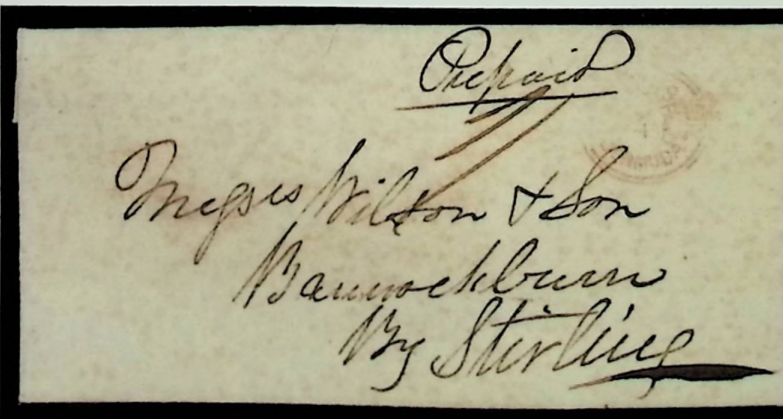 Prepaid
Messrs Wilson & Son
Bannockburn
By Stirling